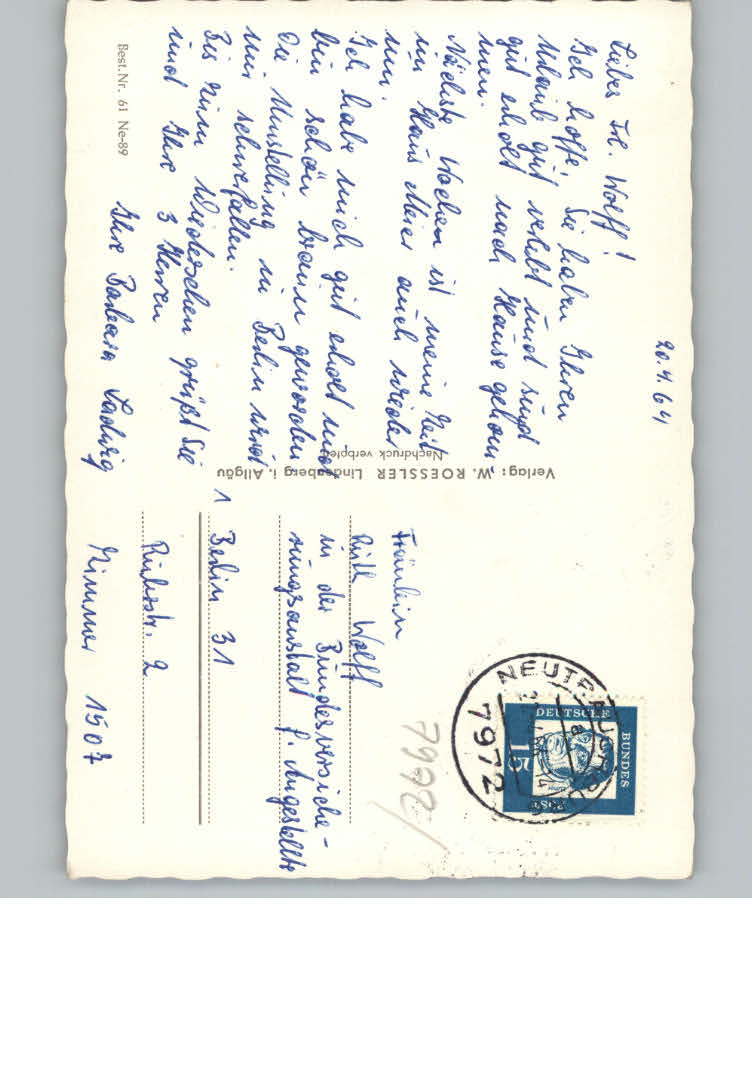 20.4.64
Liebes Frl. Wolff!
Ich hoffe, Sie haben Ihren
Urlaub gut verlebt und sind
gut erholt nach Hause gekom-
men.
Nächste Wochen ist meine Zeit
im Haus Meier auch wieder
um.
Ich habe mich gut erholt und
bin schön braun geworden.
Die Umstellung in Berlin wird
mir schwerfallen.
Bis zum Wiedersehen grüßt Sie
und Ihre 3 Herren
Ihre Barbara Ladwig
Best.Nr. 61 Ne-89
Verlag: W. ROESSLER Lindenberg i. Allgäu
Nachdruck verboten
Fräulein
Ruth Wolff
in der Bundesversiche-
rungsanstalt f. Angestellte
1 Berlin 31
Ruhrstr. 2
Zimmer 1507
7972
NEUTRAUCHBURG
DEUTSCHE
BUNDES
POST
15